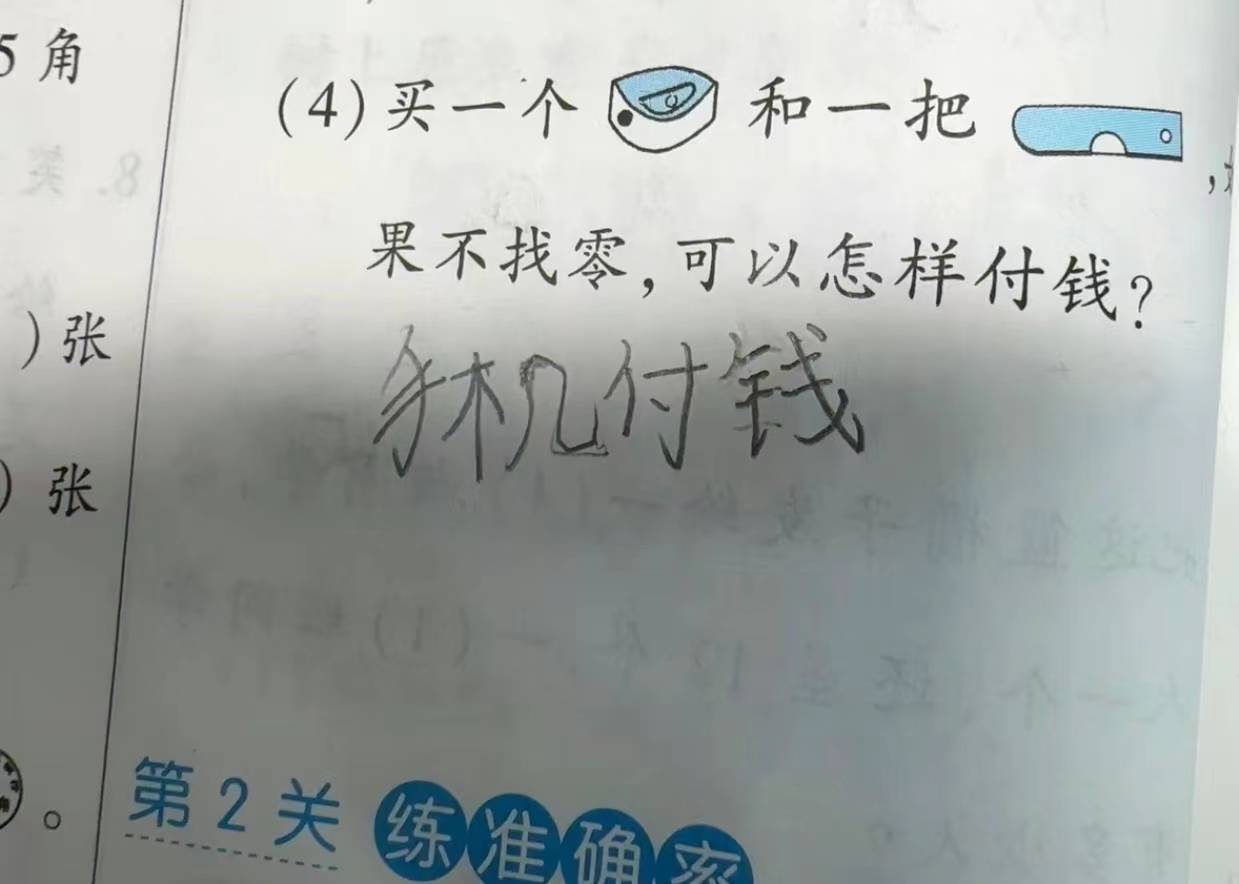 5角
(4)买一个 和一把 ,
果不找零,可以怎样付钱?
)张
手机付钱
)张
。
第2关 练准确率